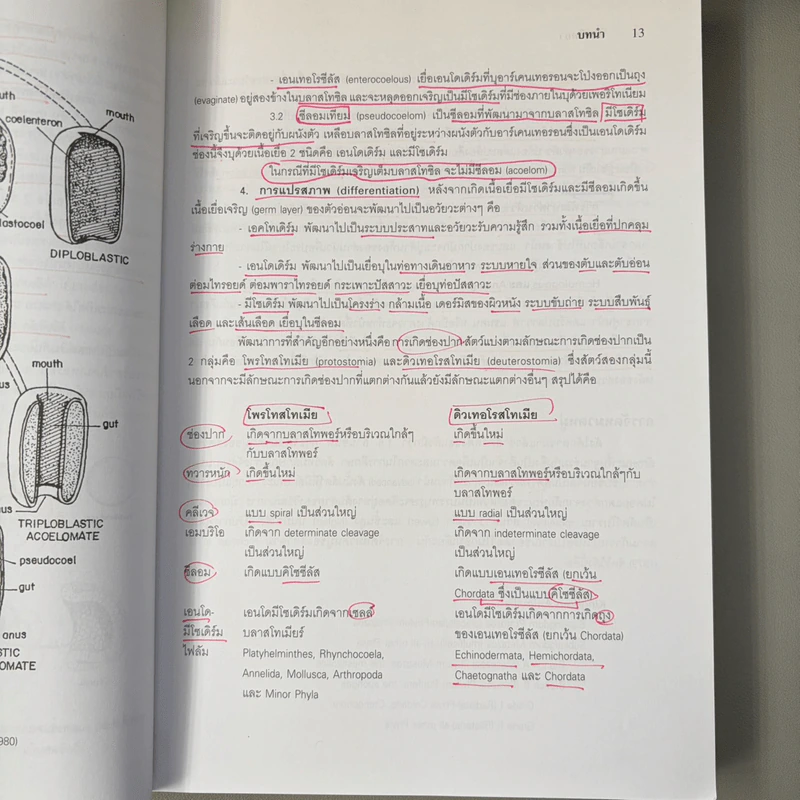 บทนำ 13
- เอนเทอโรซีลัส (enterocoelous) เยื่อเอนโดเดิร์มที่บุอาร์เคนเทอรอนจะโป่งออกเป็นถุง
(evaginate) อยู่สองข้างในบลาสโทซิล และจะหลุดออกเจริญเป็นมีโซเดิร์มที่มีช่องภายในบุด้วยเพอริโทเนียม
3.2 ซีลอมเทียม (pseudocoelom) เป็นซีลอมที่พัฒนามาจากบลาสโทซิล มีโซเดิร์ม
ที่เจริญขึ้นจะติดอยู่กับผนังตัว เหลือบลาสโทซิลที่อยู่ระหว่างผนังตัวกับอาร์เคนเทอรอนซึ่งเป็นเอนโดเดิร์ม
ช่องนี้จึงบุด้วยเนื้อเยื่อ 2 ชนิดคือ เอนโดเดิร์ม และมีโซเดิร์ม
ในกรณีที่มีโซเดิร์มเจริญเต็มบลาสโทซิล จะไม่มีซีลอม (acoelom)
4. การแปรสภาพ (differentiation) หลังจากเกิดเนื้อเยื่อมีโซเดิร์มและมีซีลอมเกิดขึ้น
เนื้อเยื่อเจริญ (germ layer) ของตัวอ่อนจะพัฒนาไปเป็นอวัยวะต่างๆ คือ
- เอคโทเดิร์ม พัฒนาไปเป็นระบบประสาทและอวัยวะรับความรู้สึก รวมทั้งเนื้อเยื่อที่ปกคลุม
ร่างกาย
- เอนโดเดิร์ม พัฒนาไปเป็นเยื่อบุในท่อทางเดินอาหาร ระบบหายใจ ส่วนของตับและตับอ่อน
ต่อมไทรอยด์ ต่อมพาราไทรอยด์ กระเพาะปัสสาวะ เยื่อบุท่อปัสสาวะ
- มีโซเดิร์ม พัฒนาไปเป็นโครงร่าง กล้ามเนื้อ เดอร์มิสของผิวหนัง ระบบขับถ่าย ระบบสืบพันธุ์
เลือด และเส้นเลือด เยื่อบุในซีลอม
พัฒนาการที่สำคัญอีกอย่างหนึ่งคือการเกิดช่องปาก สัตว์แบ่งตามลักษณะการเกิดช่องปากเป็น
2 กลุ่มคือ โพรโทสโทเมีย (protostomia) และดิวเทอโรสโทเมีย (deuterostomia) ซึ่งสัตว์สองกลุ่มนี้
นอกจากจะมีลักษณะการเกิดช่องปากที่แตกต่างกันแล้วยังมีลักษณะแตกต่างอื่นๆ สรุปได้คือ
โพรโทสโทเมีย ดิวเทอโรสโทเมีย
ช่องปาก เกิดจากบลาสโทพอร์หรือบริเวณใกล้ๆ เกิดขึ้นใหม่
กับบลาสโทพอร์
ทวารหนัก เกิดขึ้นใหม่ เกิดจากบลาสโทพอร์หรือบริเวณใกล้ๆกับ
บลาสโทพอร์
คลีเวจ แบบ spiral เป็นส่วนใหญ่ แบบ radial เป็นส่วนใหญ่
เอมบริโอ เกิดจาก determinate cleavage เกิดจาก indeterminate cleavage
เป็นส่วนใหญ่ เป็นส่วนใหญ่
ซีลอม เกิดแบบคิโซซีลัส เกิดแบบเอนเทอโรซีลัส (ยกเว้น
Chordata ซึ่งเป็นแบบคิโซซีลัส)
เอนโด- เอนโดมีโซเดิร์มเกิดจากเซลล์ เอนโดมีโซเดิร์มเกิดจากการเกิดถุง
มีโซเดิร์ม บลาสโทเมียร์ ของเอนเทอโรซีลัส (ยกเว้น Chordata)
ไฟลัม Platyhelminthes, Rhynchocoela, Echinodermata, Hemichordata,
Annelida, Mollusca, Arthropoda Chaetognatha และ Chordata
และ Minor Phyla
uth
coelenteron
mouth
lastocoel
DIPLOBLASTIC
us
mouth
gut
us
TRIPLOBLASTIC
ACOELOMATE
pseudocoel
gut
anus
STIC
OMATE
980)